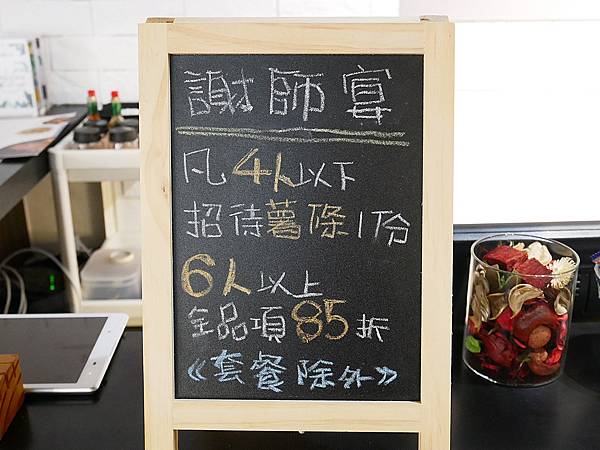 謝師宴
凡4人以下
招待薯條1份
6人以上
全品項85折
《套餐除外》